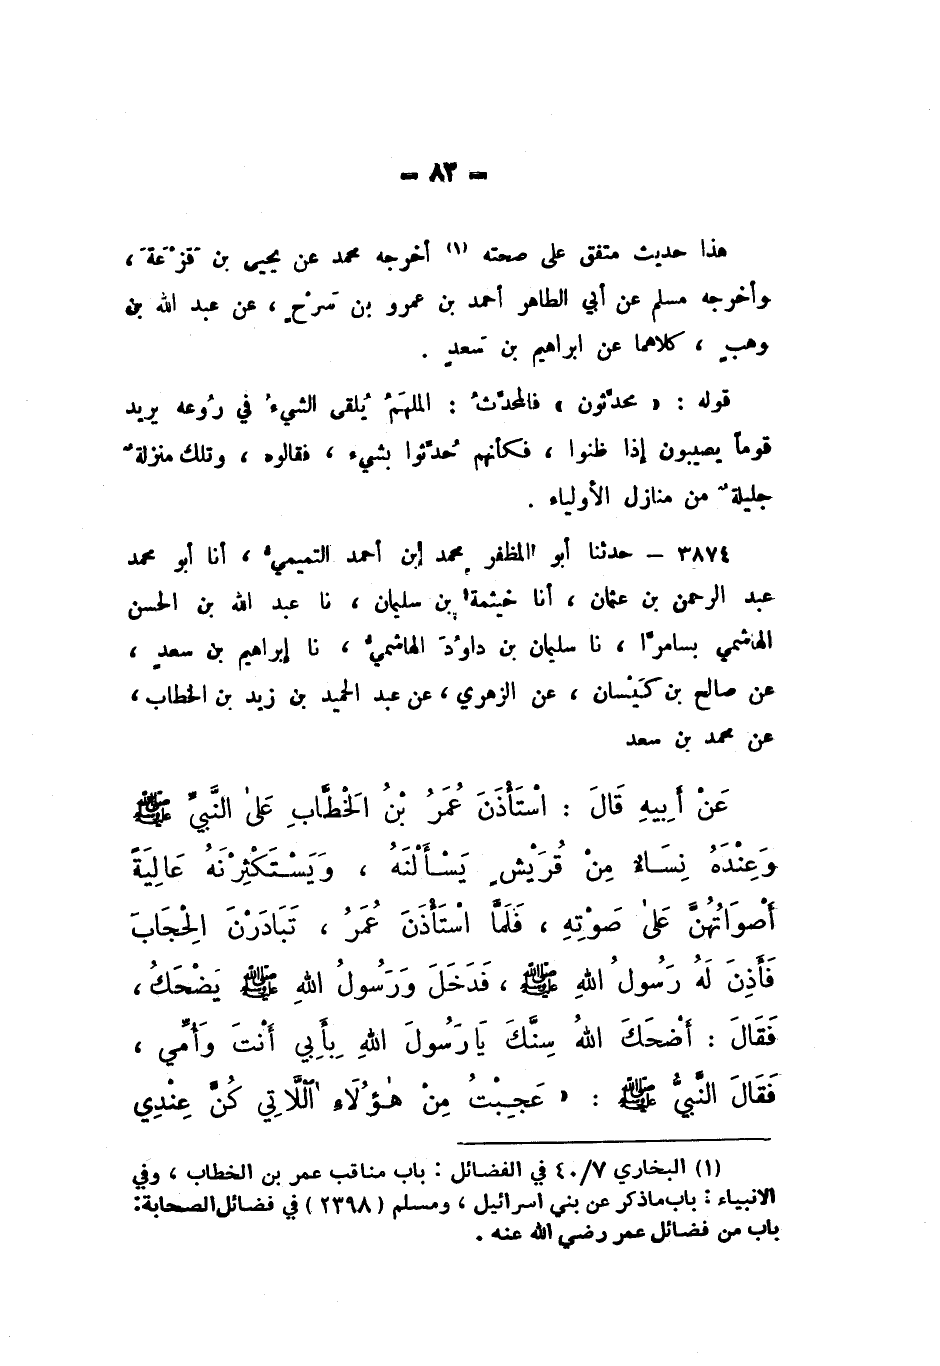 - ٨٣ -
هذا حديث متفق على صحته (١) أخرجه محمد عن يحيى بن قَزَعَةَ ،
وأخرجه مسلم عن أبي الطاهر أحمد بن عمرو بن سَرْحٍ ، عن عبد الله بن
وهبٍ ، كلاهما عن ابراهيم بن سَعدٍ .
قوله : « محدَّثون » فالمحدَّثُ : الملهَمُ يُلقى الشيءُ في رُوعه يريد
قوماً يصيبون إذا ظنوا ، فكأنهم حُدِّثوا بشيء ، فقالوه ، وتلك منزلةٌ
جليلةٌ من منازل الأولياء .
٣٨٧٤ – حدثنا أبو المظفر محمد إبن أحمد التميميُ ، أنا أبو محمد
عبد الرحمن بن عثمان ، أنا خيثمةُ بن سليمان ، نا عبد الله بن الحسن
الهاشمي بسامرّا ، نا سليمان بن داوُدَ الهاشميُ ، نا إبراهيم بن سعدٍ ،
عن صالح بن كَيْسان ، عن الزهري ، عن عبد الحميد بن زيد بن الخطاب ،
عن محمد بن سعد
عَنْ أَبِيهِ قَالَ : اسْتَأْذَنَ عُمَرُ بْنُ الخْطَّابِ عَلىٰ النَّبِيِّ ﷺ
وَعِنْدَهُ نِسَاءٌ مِنْ قُرَيْشٍ يَسْأَلْنَهُ ، وَيَسْتَكْثِرْنَهُ عَالِيَةً
أَصْوَاتُهُنَّ عَلىٰ صَوْتِهِ ، فَلَمَّا اسْتَأْذَنَ عُمَرُ ، تَبَادَرْنَ الْحِجَابَ
فَأَذِنَ لَهُ رَسُولُ اللهِ ﷺ ، فَدَخَلَ وَرَسُولُ اللهِ ﷺ يَضْحَكُ ،
فَقَالَ : أَضْحَكَ اللهُ سِنَّكَ يَا رَسُولَ اللهِ بِأَبِي أَنْتَ وَأُمِّي ،
فَقَالَ النَّبِيُّ ﷺ : « عَجِبْتُ مِنْ هٰؤُلَاءِ اللَّاتِي كُنَّ عِنْدِي
(١) البخاري ٤٠/٧ في الفضائل : باب مناقب عمر بن الخطاب ، وفي
الانبياء : باب ماذكر عن بني اسرائيل ، ومسلم ( ٢٣٩٨ ) في فضائل الصحابة:
باب من فضائل عمر رضي الله عنه .